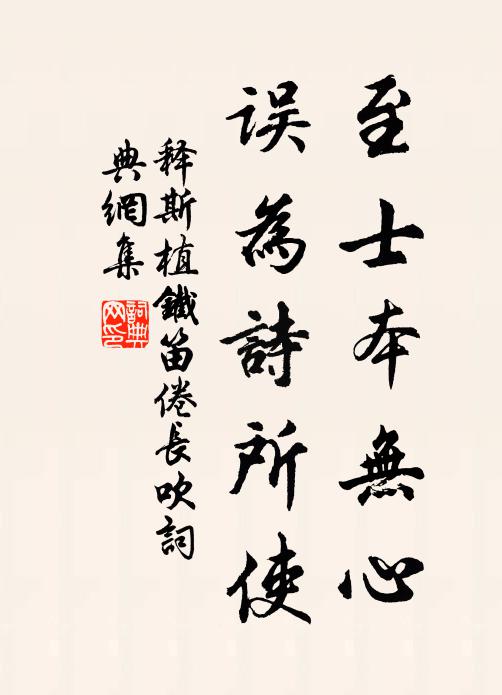 至士本無心
误為詩所使
释斯植鐵笛倦長吹詞
典網集
詞典
网印